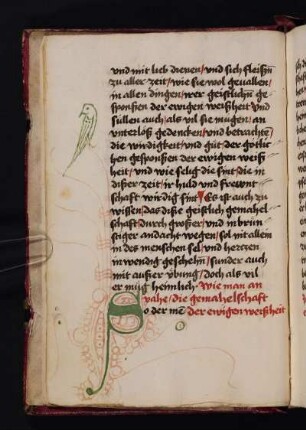 vnd mit lieb dienen / vnd sich fleissen
zu aller zeit / wie sie wol geuallen /
in allen dingen / wer geistlichn ge
sponßen der ewigen weißheit vnd
süllen auch / als vil sie mugen / an
vnterloß gedencken / vnd betrachtē
die wirdigkeit / vnd güt der gotlich
hen gesponßen der ewigen weiß
heit / vnd wie selig die sint / die in
dißer zeit / ir huld vnd frewnt
schaft wirdig sint Es ist auch zu
wissen / das diße geistlich gemahel
schaft / durch großer / vnd inbrün
stiger andacht wegen / sol nit allein
in des menschen sel / vnd hertzen
inwendig geschehn / sunder auch
mit außer v̈bung / doch als vil
er mug heimlich. Wie man an
vahe / die gemahelschaft
So der mē der ewigen weißheit